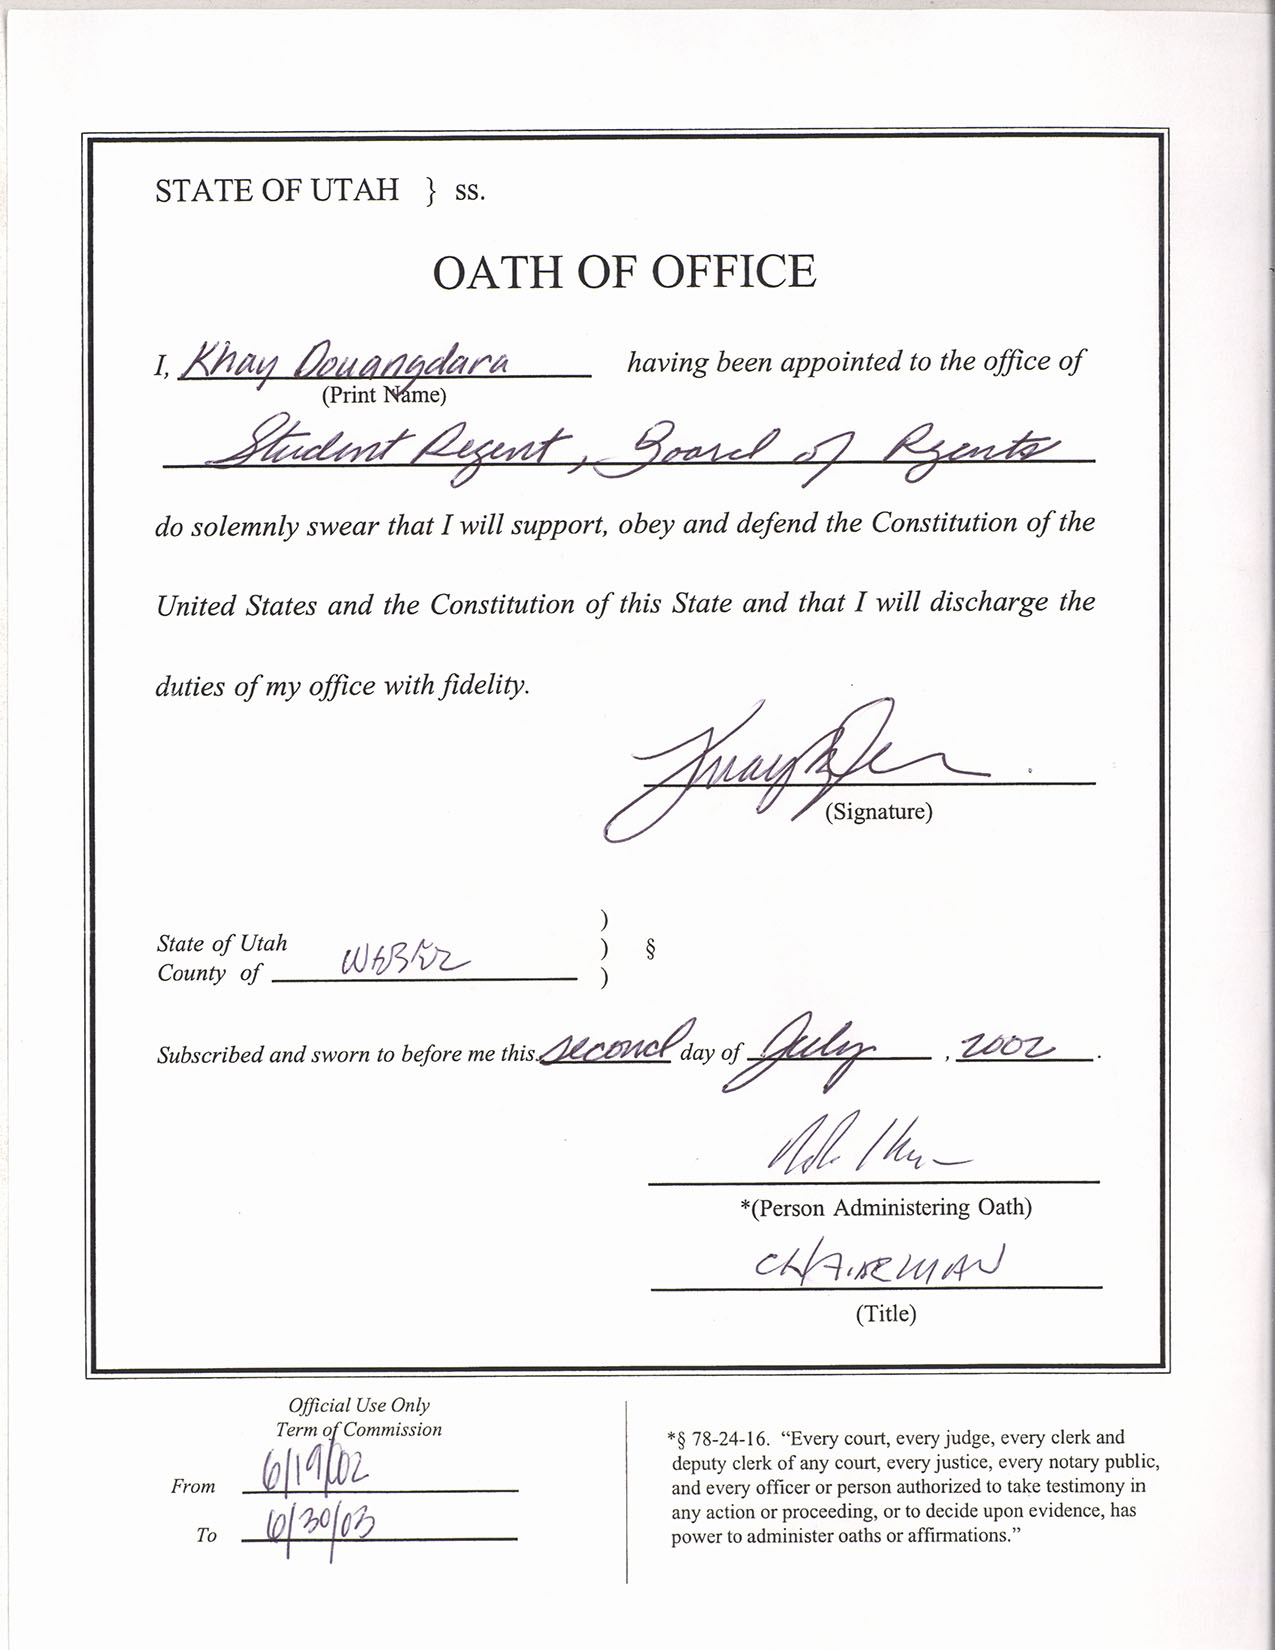 STATE OF UTAH } ss.
OATH OF OFFICE
I, Khay Douangdara having been appointed to the office of
(Print Name)
Student Regent, Board of Regents
do solemnly swear that I will support, obey and defend the Constitution of the
United States and the Constitution of this State and that I will discharge the
duties of my office with fidelity.
(Signature)
)
State of Utah ) §
County of WEBER )
Subscribed and sworn to before me this second day of July, 2002.
*(Person Administering Oath)
CHAIRMAN
(Title)
Official Use Only
Term of Commission
From 6/19/02
To 6/30/03
*§ 78-24-16. “Every court, every judge, every clerk and
deputy clerk of any court, every justice, every notary public,
and every officer or person authorized to take testimony in
any action or proceeding, or to decide upon evidence, has
power to administer oaths or affirmations.”